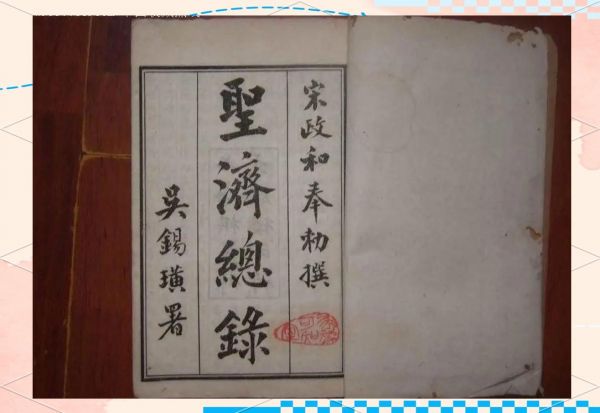 宋政和奉勑撰
聖濟總錄
吳錫璜署